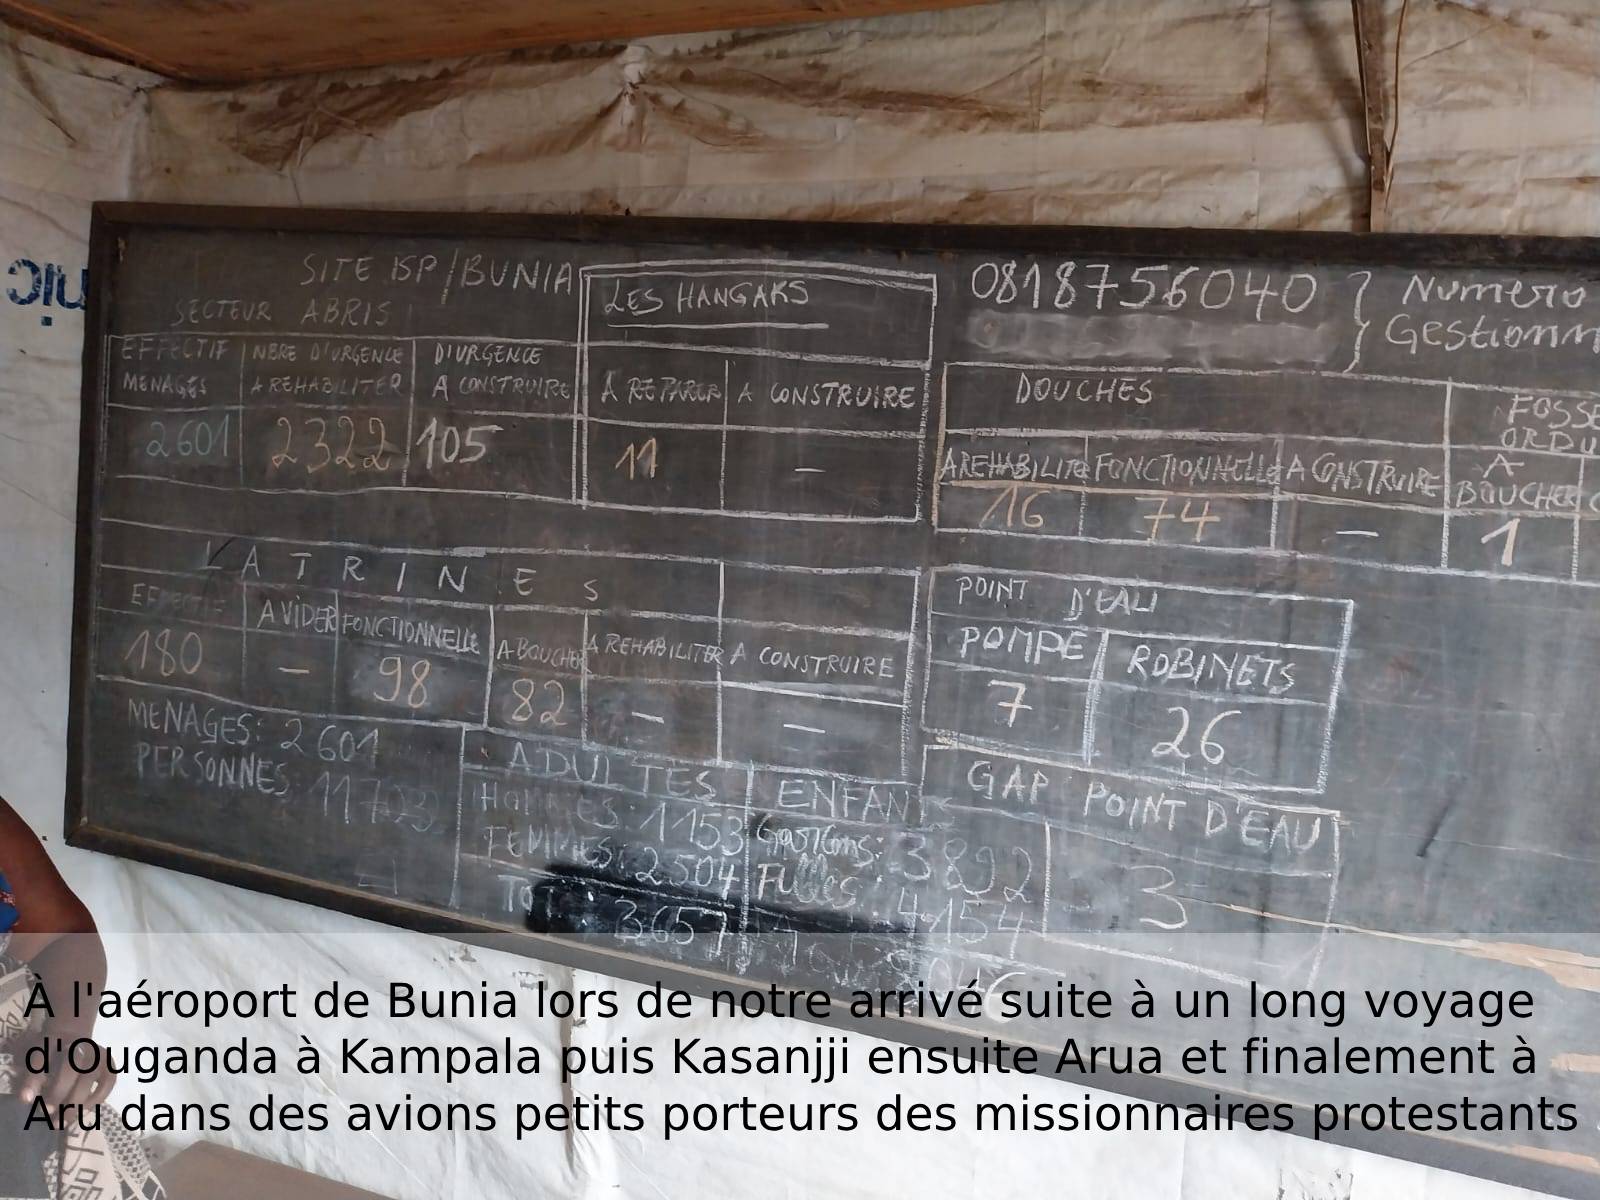 SITE ISP/BUNIA
SECTEUR ABRIS
EFFECTIF MENAGES
NBRE D'URGENCE A REHABILITER
D'URGENCE A CONSTRUIRE
2601 2322 105
LES HANGARS
A REPARER A CONSTRUIRE
11 –
0818756040 } Numero
Gestionn
DOUCHES
AREHABILITE FONCTIONNELLE A CONSTRUIRE
16 74 –
FOSSE
ORDU
A BOUCHER
1
LATRINES
EFFECTIF A VIDER FONCTIONNELLE A BOUCHER A REHABILITER A CONSTRUIRE
180 – 98 82 – –
POINT D'EAU
POMPE ROBINETS
7 26
MENAGES: 2601
PERSONNES: 11703
ADULTES
HOMMES: 1153
FEMMES: 2504
TOT : 3657
ENFANTS
Garçons: 3892
Filles: 4154
8046
GAP POINT D'EAU
3
À l'aéroport de Bunia lors de notre arrivé suite à un long voyage
d'Ouganda à Kampala puis Kasanjji ensuite Arua et finalement à
Aru dans des avions petits porteurs des missionnaires protestants